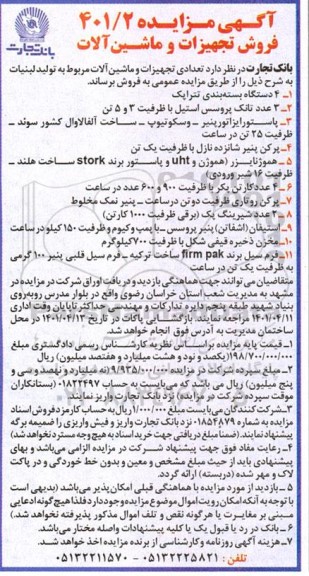 آگهی مزایده ۴۰۱/۲
فروش تجهیزات و ماشین آلات
بانک تجارت
بانک تجارت در نظر دارد تعدادی تجهیزات و ماشین آلات مربوط به تولید لبنیات
به شرح ذیل را از طریق مزایده عمومی به فروش برساند.
۱_ ۴ دستگاه بسته‌بندی تتراپک
۲_ ۳ عدد تانک پروسس استیل با ظرفیت ۳ و ۵ تن
۳_ پاستورایزاتور پنیر _ وسکوتیوپ _ ساخت آلفالاوال کشور سوئد _
ظرفیت ۲۵ تن در ساعت
۴_ پرکن پنیر شانزده نازل با ظرفیت یک تن
۵_ هموژنایزر (هموژن و uht و پاستور برند stork ساخت هلند _
ظرفیت ۱۶ شیر ورودی)
۶_ ۴ عدد کارتن پکر با ظرفیت ۹۰۰ و ۶۰۰ عدد در ساعت
۷_ پرکن روتاری ظرفیت دو تن در ساعت _ پنیر نمک مخلوط
۸_ ۲ عدد شیرینگ پک (برقی ظرفیت ۱۰۰۰ کارتن)
۹_ استیفان (اشفاتن) پنیر پروسس _ با پمپ وکیوم و ظرفیت ۱۵۰ کیلو در ساعت
۱۰_ مخزن ذخیره قیفی شکل با ظرفیت ۷۰۰ کیلوگرم
۱۱_ فرم سیل برند firm pak ساخت ترکیه _ فرم سیل قلبی پنیر ۱۰۰ گرمی
به ظرفیت یک تن در ساعت
متقاضیان می توانند جهت هماهنگی بازدید و دریافت اوراق شرکت در مزایده در
مشهد به مدیریت شعب استان خراسان رضوی واقع در بلوار مدرس روبه‌روی
بنیاد شهید طبقه پنجم دایره تدارکات و مهندسی حداکثر تا پایان وقت اداری
۱۴۰۴/۰۴/۱۱ مراجعه نمایند. بازگشایی پاکات در تاریخ ۱۴۰۴/۰۴/۱۲ در محل
ساختمان مدیریت به آدرس فوق انجام خواهد شد.
۱_ قیمت پایه مزایده براساس نظریه کارشناس رسمی دادگستری مبلغ
۱۹۸/۷۰۰/۰۰۰/۰۰۰ (یکصد و نود و هشت میلیارد و هفتصد میلیون) ریال
۲_ مبلغ سپرده شرکت در مزایده ۹/۹۳۵/۰۰۰/۰۰۰ (نه میلیارد و نهصد و سی و
پنج میلیون) ریال می باشد که می‌بایست به حساب ۰۱۸۲۲۴۹۷ (بستانکاران
موقت سپرده شرکت در مزایده) نزد بانک تجارت واریز نمایند.
۳_ شرکت کنندگان می‌بایست مبلغ ۱/۰۰۰/۰۰۰ ریال به حساب کارمزد فروش اسناد
مزایده به شماره ۰۱۸۵۴۸۷۹ نزد بانک تجارت واریز و فیش واریزی را ضمیمه برگه
پیشنهاد نمایند. (ضمنا مبلغ دریافتی جهت خرید اسناد به هیچ وجه مسترد نخواهد شد)
۴_ رعایت مفاد فوق جهت پیشنهاد شرکت در مزایده الزامی می‌باشد و بهای
پیشنهادی باید از حیث مبلغ مشخص و معین و بدون خط خوردگی و در پاکت
لاک و مهر شده (دربسته) ارائه گردد.
۵_ بازدید از مورد مزایده با هماهنگی قبلی امکان‌پذیر می‌باشد (بدیهی است
با توجه به آنکه امکان رویت اموال موضوع مزایده وجود دارد فلذا هیچ گونه ادعایی
مبنی بر مغایرت یا هرگونه نقص و تلف اموال مذکور پذیرفته نخواهد شد.)
۶_ بانک در رد یا قبول یک یا کلیه پیشنهادات واصله مختار می‌باشد.
۷_ هزینه آگهی روزنامه و کارشناسی از برنده مزایده اخذ خواهد شد.
تلفن: ۰۵۱۳۲۲۲۵۸۲۱ _ ۰۵۱۳۲۲۱۱۵۷۰